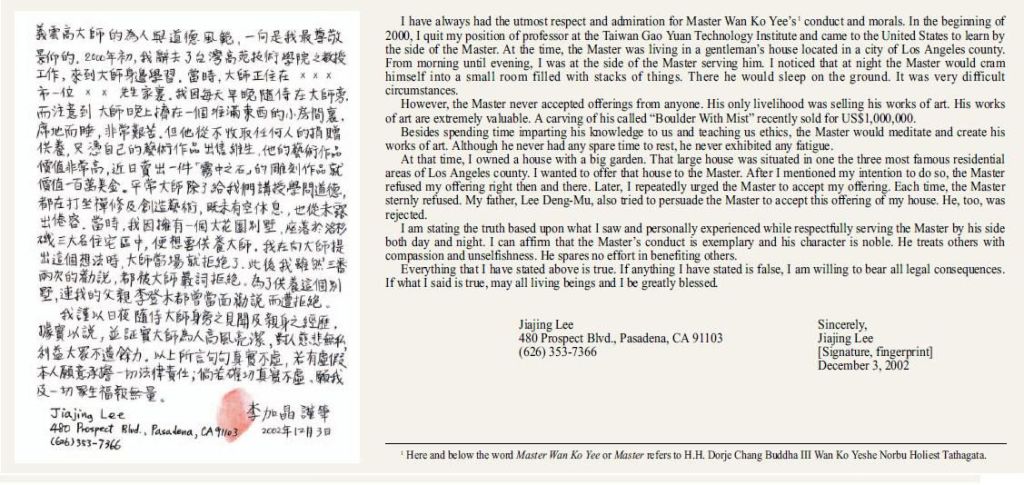 義雲高大師的為人與道德風範，一向是我最尊敬
景仰的。2000年初，我辭去了台灣高苑技術學院之教授
工作，來到大師身邊學習。當時，大師正住在 × × ×
市一位 × × 先生家裏。我因每天早晚隨侍在大師旁，
而注意到 大師晚上擠在一個堆滿東西的小房間裏，
席地而睡，非常艱苦。但他從不收取任何人的捐贈
供養，只憑自己的藝術作品出售維生，他的藝術作品
價值非常高，近日賣出一件「霧中之石」的雕刻作品就
價值一百萬美金。平常大師除了給我們講授學問道德，
都在打坐禪修及創造藝術，既未有空休息，也從未露
出倦容。當時，我因擁有一個大花園別墅，座落於洛杉
磯三大名住宅區中，便想要供養大師。我在向大師提
出這個想法時，大師當場就拒絕了。此後我雖然三番
兩次的勸說，都被大師嚴詞拒絕。為了供養這個別
墅，連我的父親李登木都曾當面勸說而遭拒絕。
我謹以日夜隨侍大師身旁之見聞及親身之經歷，
據實以說，並証實大師為人高風亮潔，對人慈悲無私
利益大眾不遺餘力。以上所言句句真實不虛，若有虛假
本人願意承擔一切法律責任；倘若確切真實不虛，願我
及一切眾生福報無量。
Jiajing Lee
480 Prospect Blvd., Pasadena, CA 91103
(626) 353-7366
李加晶 謹筆
2002年12月3日
I have always had the utmost respect and admiration for Master Wan Ko Yee's¹ conduct and morals. In the beginning of
2000, I quit my position of professor at the Taiwan Gao Yuan Technology Institute and came to the United States to learn by
the side of the Master. At the time, the Master was living in a gentleman's house located in a city of Los Angeles county.
From morning until evening, I was at the side of the Master serving him. I noticed that at night the Master would cram
himself into a small room filled with stacks of things. There he would sleep on the ground. It was very difficult
circumstances.
However, the Master never accepted offerings from anyone. His only livelihood was selling his works of art. His works
of art are extremely valuable. A carving of his called “Boulder With Mist” recently sold for US$1,000,000.
Besides spending time imparting his knowledge to us and teaching us ethics, the Master would meditate and create his
works of art. Although he never had any spare time to rest, he never exhibited any fatigue.
At that time, I owned a house with a big garden. That large house was situated in one the three most famous residential
areas of Los Angeles county. I wanted to offer that house to the Master. After I mentioned my intention to do so, the Master
refused my offering right then and there. Later, I repeatedly urged the Master to accept my offering. Each time, the Master
sternly refused. My father, Lee Deng-Mu, also tried to persuade the Master to accept this offering of my house. He, too, was
rejected.
I am stating the truth based upon what I saw and personally experienced while respectfully serving the Master by his side
both day and night. I can affirm that the Master's conduct is exemplary and his character is noble. He treats others with
compassion and unselfishness. He spares no effort in benefiting others.
Everything that I have stated above is true. If anything I have stated is false, I am willing to bear all legal consequences.
If what I said is true, may all living beings and I be greatly blessed.
Jiajing Lee
480 Prospect Blvd., Pasadena, CA 91103
(626) 353-7366
Sincerely,
Jiajing Lee
[Signature, fingerprint]
December 3, 2002
¹ Here and below the word Master Wan Ko Yee or Master refers to H.H. Dorje Chang Buddha III Wan Ko Yeshe Norbu Holiest Tathagata.